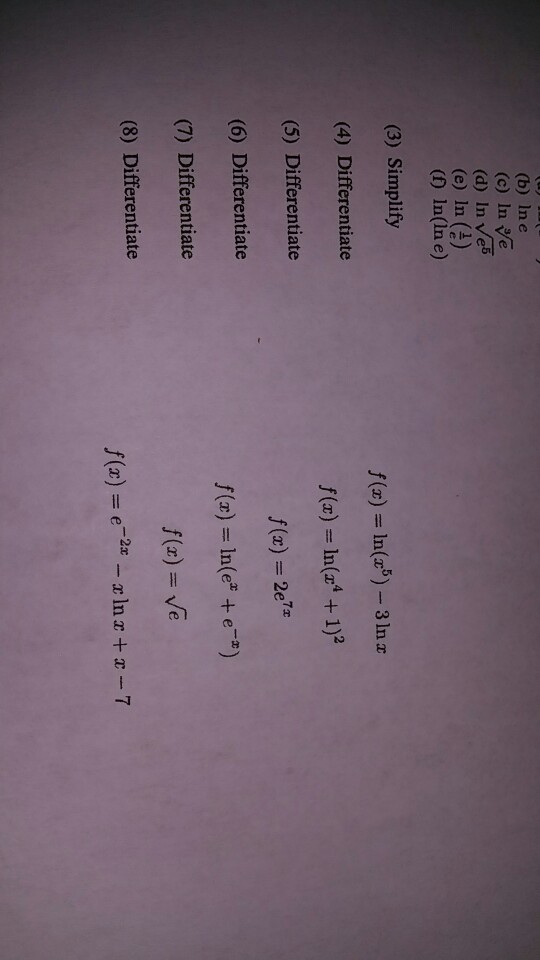 (b) ln e
(c) ln ∛e
(d) ln √e⁵
(e) ln (1/e)
(f) ln(ln e)
(3) Simplify
f(x) = ln(x⁵) − 3 ln x
(4) Differentiate
f(x) = ln(x⁴ + 1)²
(5) Differentiate
f(x) = 2e⁷ˣ
(6) Differentiate
f(x) = ln(eˣ + e⁻ˣ)
(7) Differentiate
f(x) = √e
(8) Differentiate
f(x) = e⁻²ˣ − x ln x + x − 7